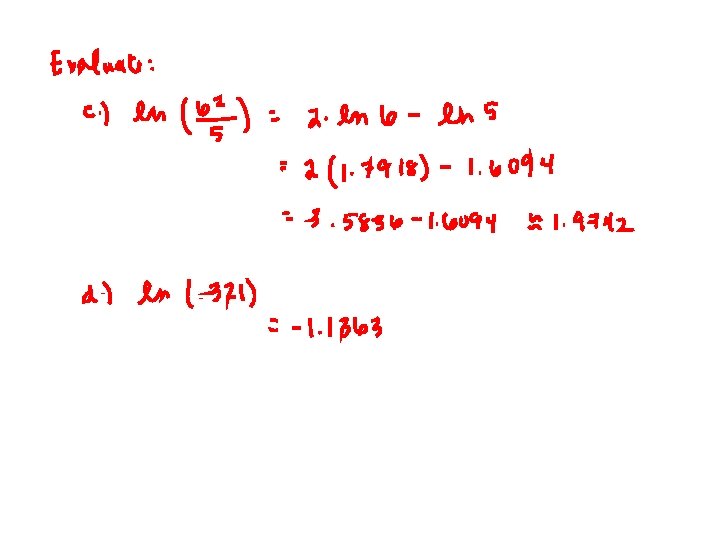 Evaluate:
c.) ln (6²/5) = 2. ln 6 - ln 5
= 2 (1.7918) - 1.6094
= 3.5836 - 1.6094 ≈ 1.9742
d.) ln (.321)
= -1.1363